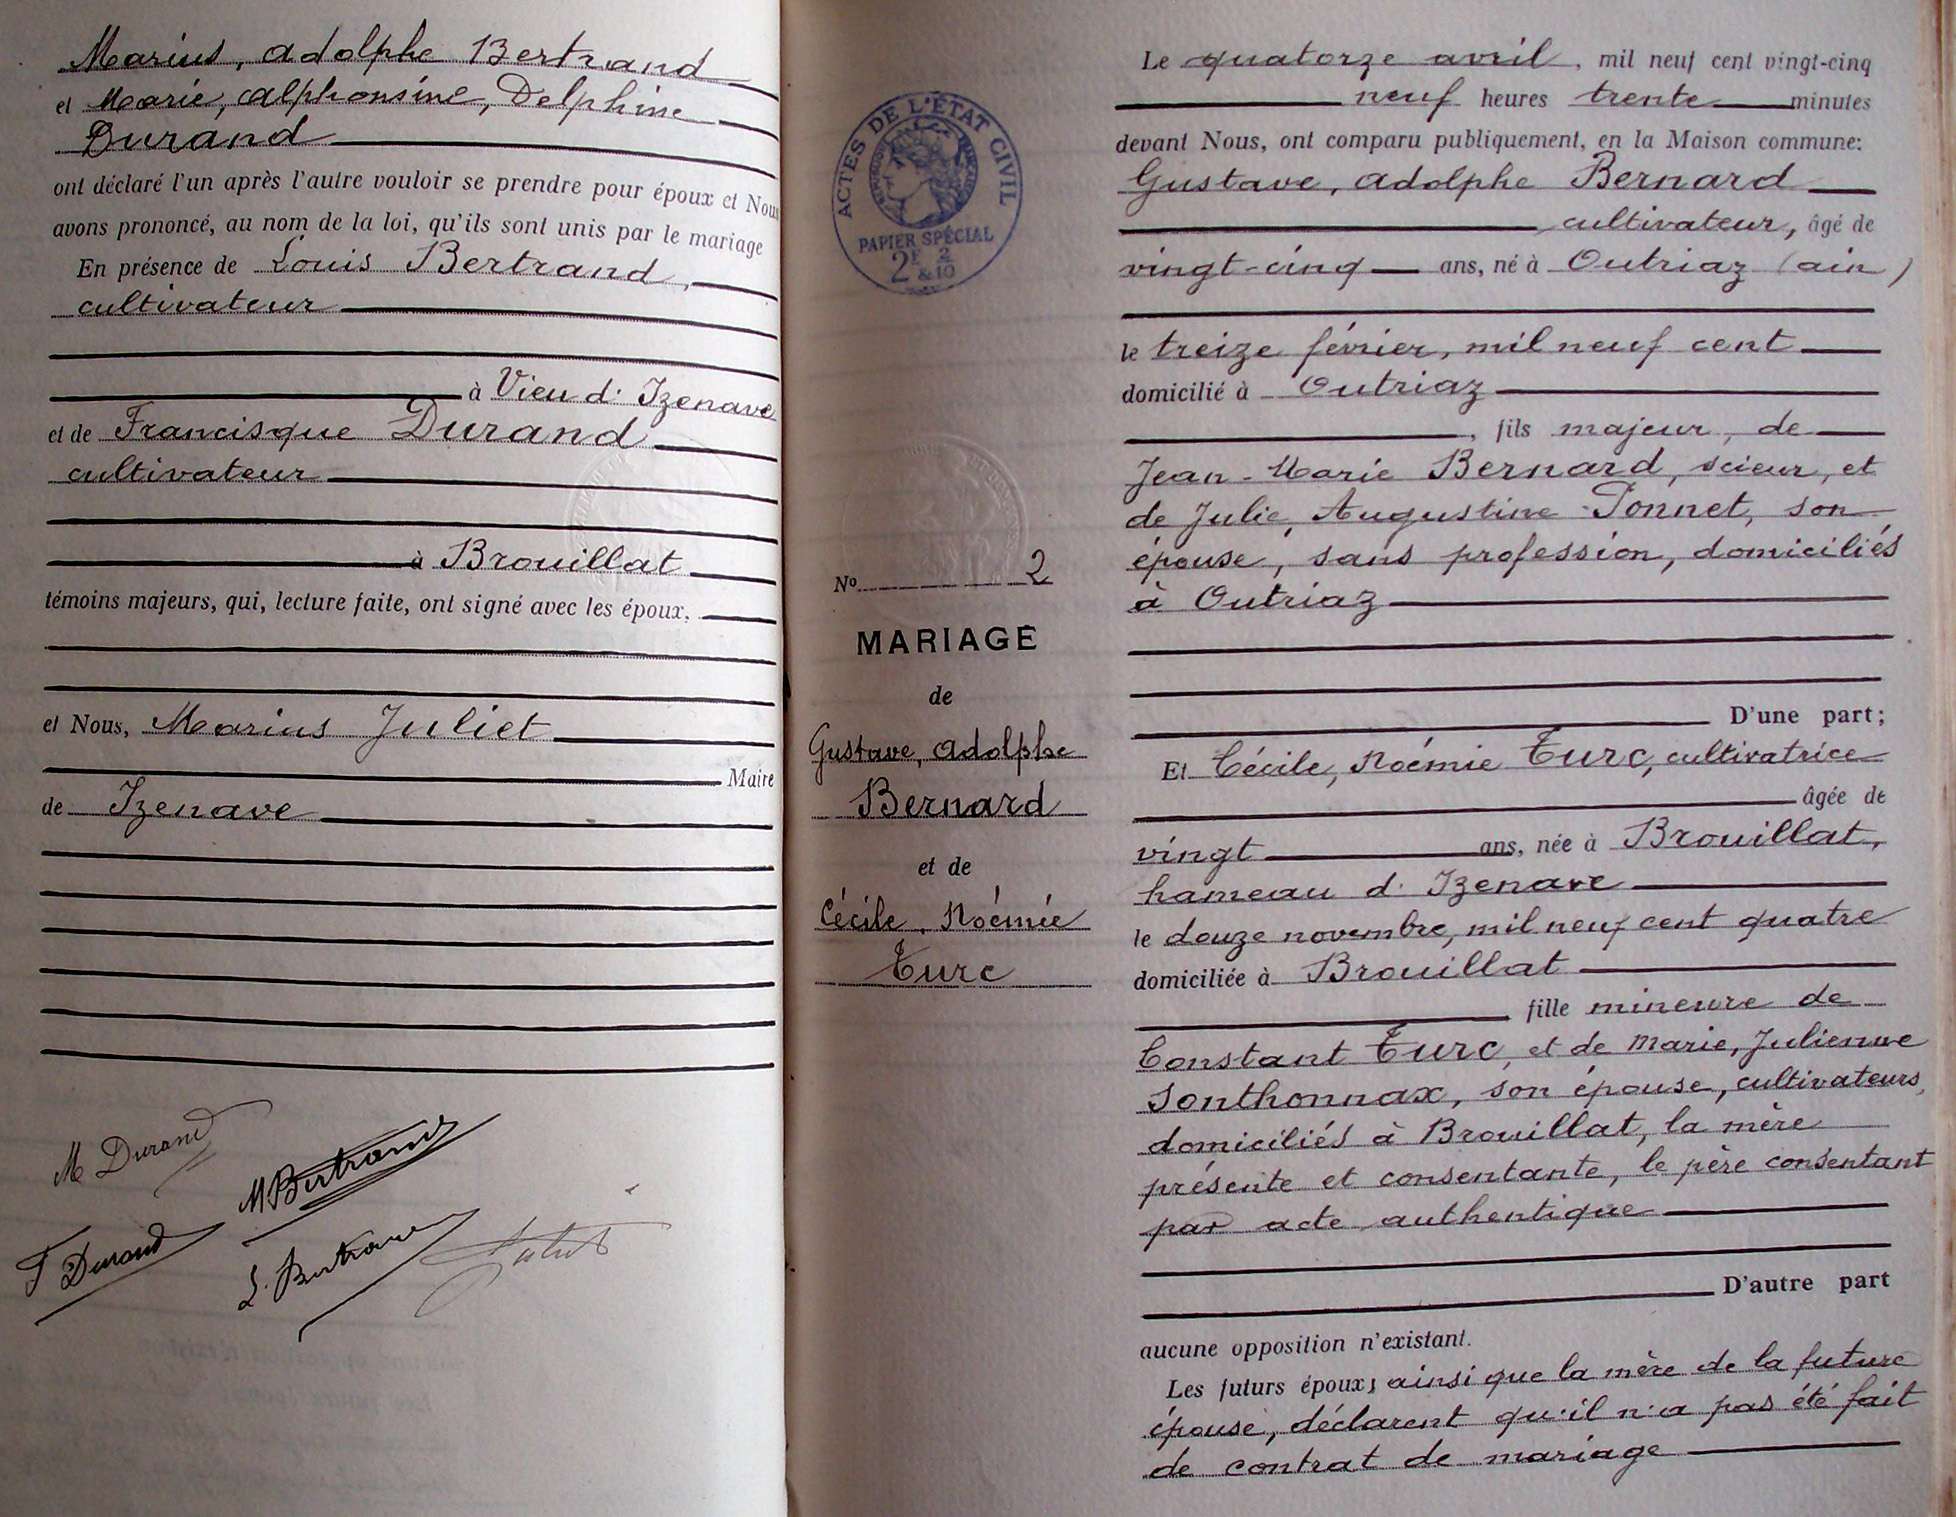 Marius, Adolphe Bertrand
et Marie, Alphonsine, Delphine
Durand
ont déclaré l'un après l'autre vouloir se prendre pour époux et Nous
avons prononcé, au nom de la loi, qu'ils sont unis par le mariage
En présence de Louis Bertrand,
cultivateur
à Vieu d'Izenave
et de Francisque Durand
cultivateur
à Brouillat
témoins majeurs, qui, lecture faite, ont signé avec les époux,
et Nous, Marius Juliet
Maire
de Izenave
M Durand
M Bertrand
F Durand
L. Bertrand
Juliet
ACTES DE L'ÉTAT CIVIL
PAPIER SPÉCIAL
2F 2
&10
No 2
MARIAGE
de
Gustave, Adolphe
Bernard
et de
Cécile, Noémie
Turc
Le quatorze avril, mil neuf cent vingt-cinq
neuf heures trente minutes
devant Nous, ont comparu publiquement, en la Maison commune:
Gustave, Adolphe Bernard
cultivateur, âgé de
vingt-cinq ans, né à Outriaz (Ain)
le treize février, mil neuf cent
domicilié à Outriaz
, fils majeur, de
Jean-Marie Bernard, scieur, et
de Julie, Augustine Ponnet, son
épouse, sans profession, domiciliés
à Outriaz
D'une part;
Et Cécile, Noémie Turc, cultivatrice
âgée de
vingt ans, née à Brouillat,
hameau d'Izenave
le douze novembre, mil neuf cent quatre
domiciliée à Brouillat
fille mineure de
Constant Turc, et de Marie, Julienne
Sonthonnax, son épouse, cultivateurs,
domiciliés à Brouillat, la mère
présente et consentante, le père consentant
par acte authentique
D'autre part
aucune opposition n'existant.
Les futurs époux, ainsi que la mère de la future
épouse, déclarent qu'il n'a pas été fait
de contrat de mariage